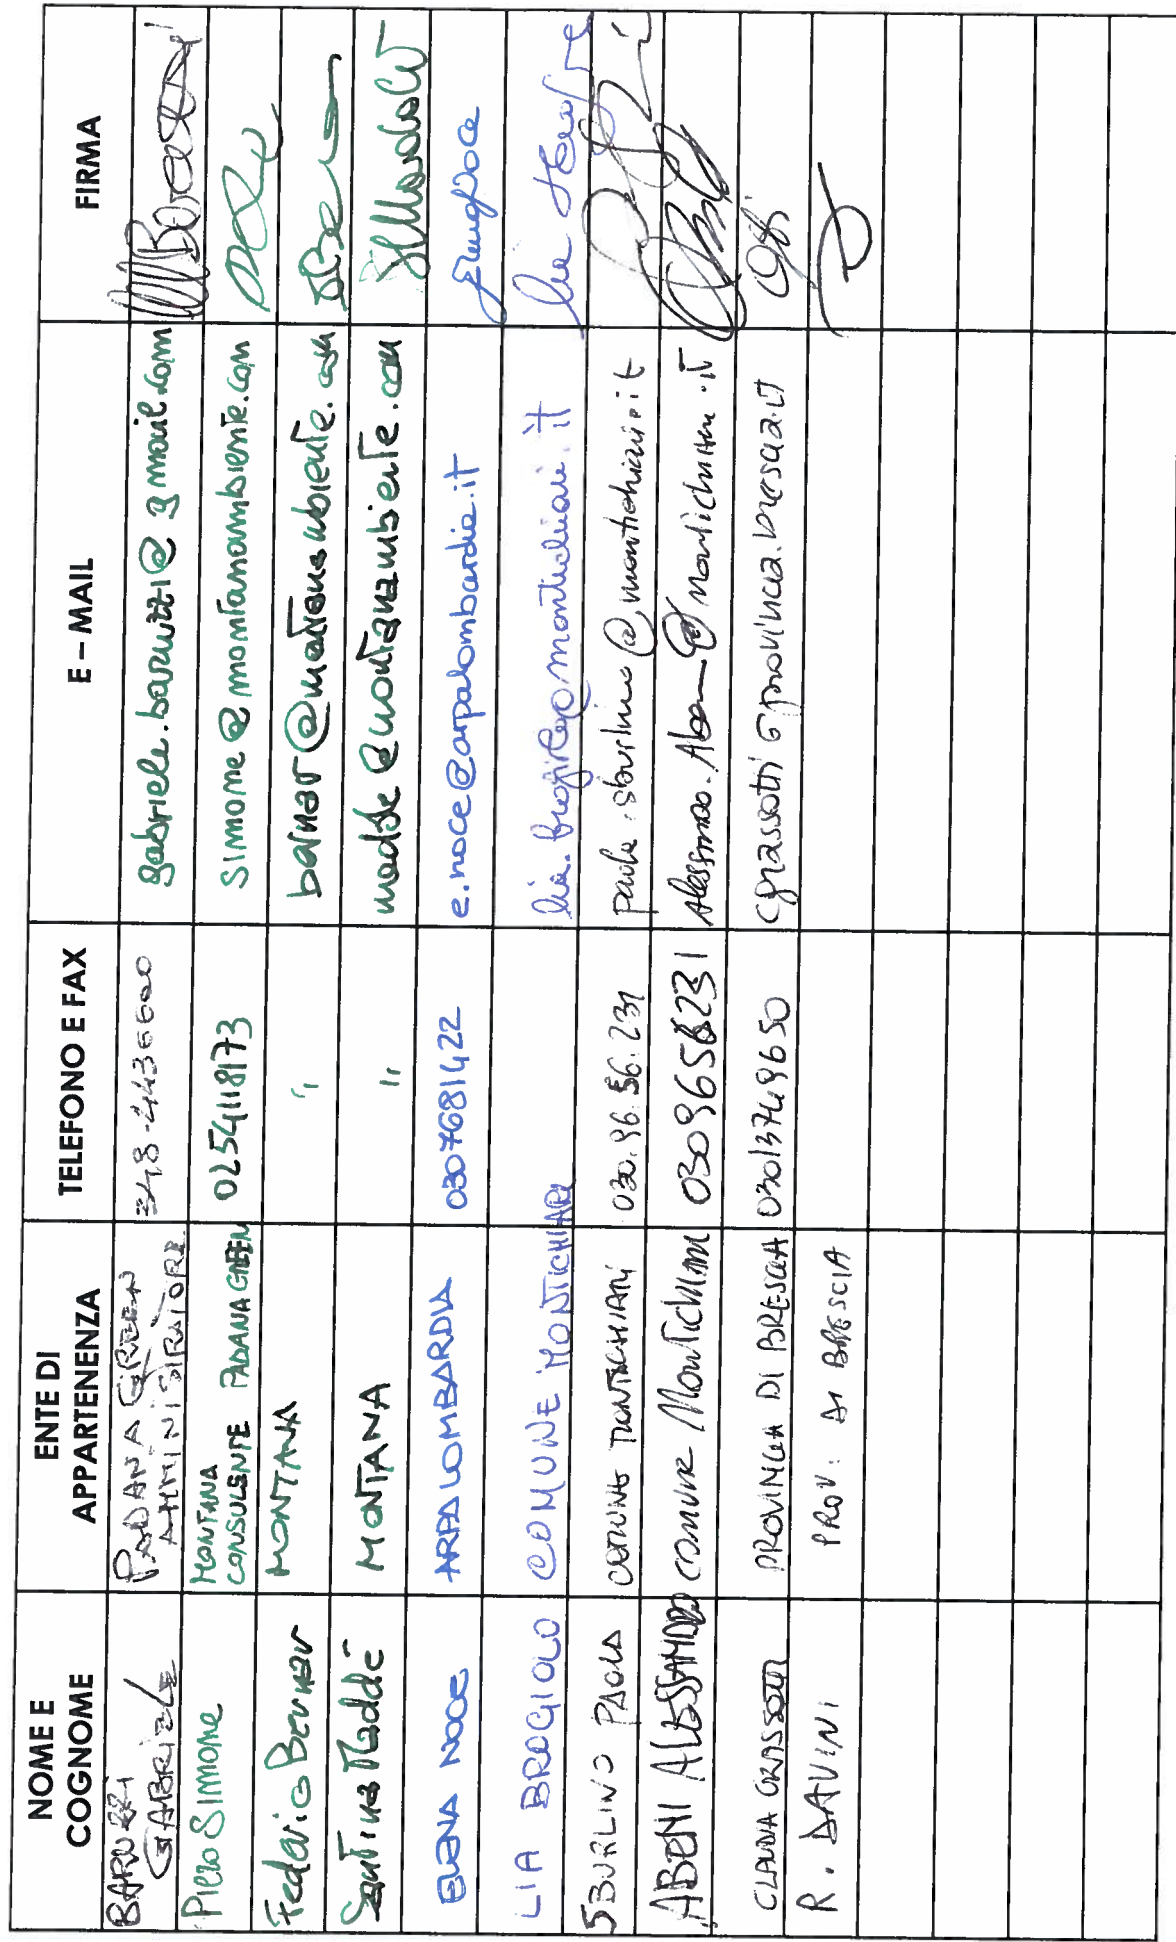 NOME E COGNOME
ENTE DI APPARTENENZA
TELEFONO E FAX
E – MAIL
FIRMA
BARUZZI GABRIELE
PADANA GREEN AMMINISTRATORE
348-4436600
gabriele.baruzzi@gmail.com
Piero Simone
MONTANA CONSULENTE PADANA GREEN
0254118173
simone@montanambiente.com
Federico Bernar
MONTANA
"
bernar@montanambiente.com
Santina Maddè
MONTANA
"
madde@montanambiente.com
ELENA NOCE
ARPA LOMBARDIA
0307681422
e.noce@arpalombardia.it
Elena Noce
LIA BROGIOLO
COMUNE MONTICHIARI
lia.brogiolo@montichiari.it
SBURLINO PAOLA
COMUNE MONTICHIARI
030.96.56.231
paola.sburlino@montichiari.it
ABENI ALESSANDRO
COMUNE MONTICHIARI
0309656231
Alessandro.Abeni@montichiari.it
CLAUDIA GRASSOTTI
PROVINCIA DI BRESCIA
03013749650
cgrassotti@provincia.brescia.it
R. DAVINI
PROV. DI BRESCIA